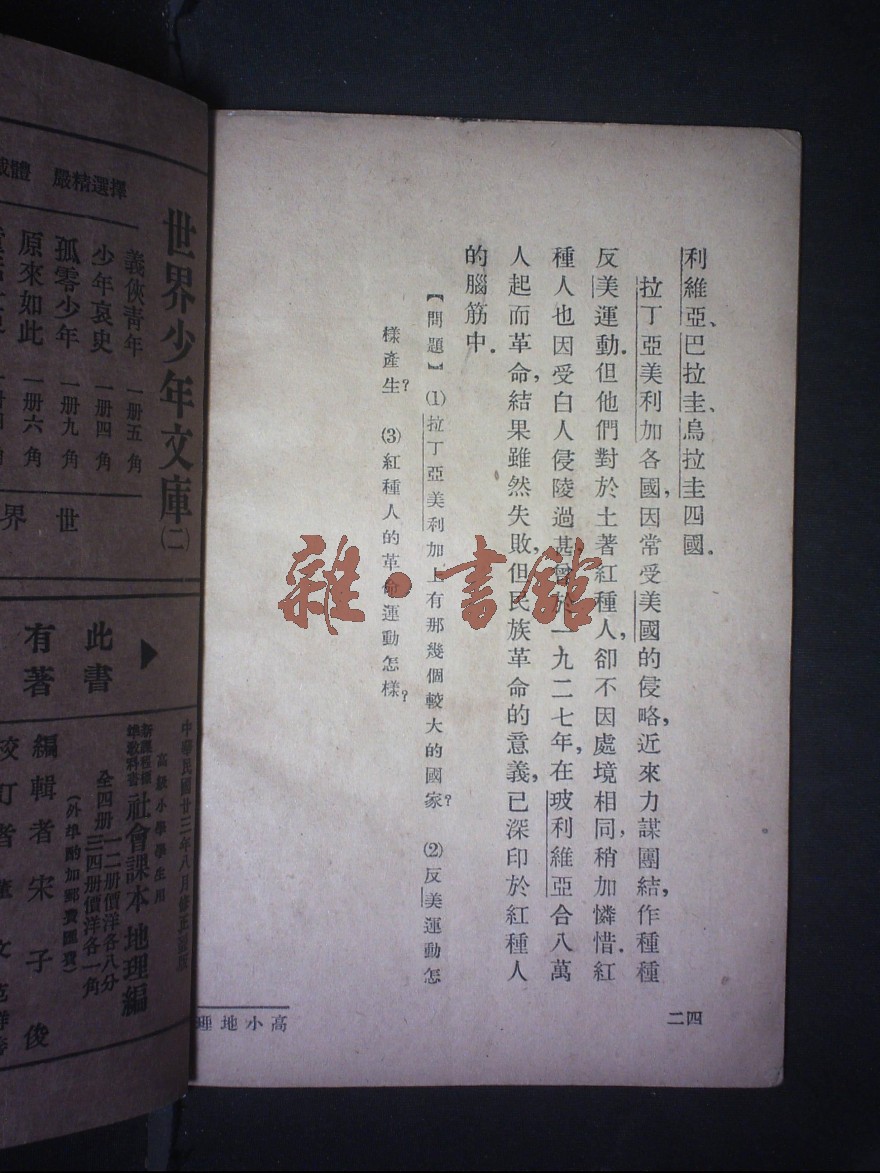 利維亞、巴拉圭、烏拉圭四國．
拉丁亞美利加各國，因常受美國的侵略，近來力謀團結，作種種
反美運動．但他們對於土著紅種人，卻不因處境相同，稍加憐惜．紅
種人也因受白人侵陵過甚，曾於一九二七年，在玻利維亞合八萬
人起而革命，結果雖然失敗，但民族革命的意義，已深印於紅種人
的腦筋中．
【問題】⑴拉丁亞美利加上有那幾個較大的國家？　⑵反美運動怎
樣產生？　⑶紅種人的革命運動怎樣？
四二
高小地理
雜·書館
擇選精嚴　體
世界少年文庫(二)
義俠青年　一册五角
少年哀史　一册四角
孤零少年　一册九角
原來如此　一册六角
世界
此書
有著
中華民國廿三年八月修正
高級小學學生用
新課程標
社會課本　地理編
全四册
一二册價洋各八分
三四册價洋各一角
(外埠酌加郵費匯費)
編輯者　宋子俊
校訂者　董文